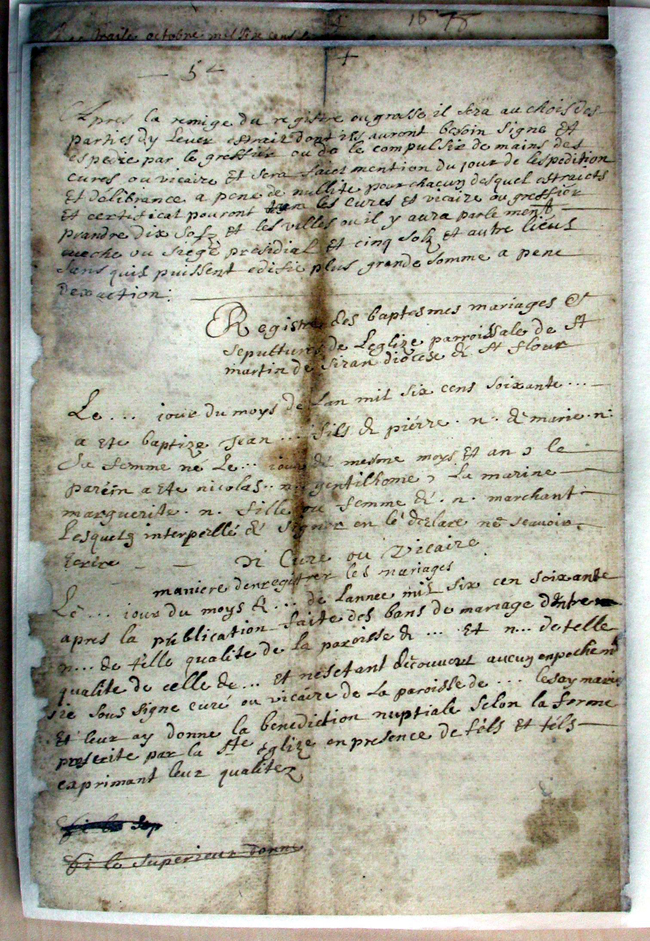 octobre mil six cens
16 78
5
Apres la remige du registre ou grosse il sera au chois des
parties dy lever estrait dont ils auront besoin signe et
espedie par le greffier ou de le compulsir de mains des
cures ou vicaire et sera faict mention du jour de lespedition
et delibrance a pene de nullite pour chacun desquel estraicts
et certificat pouront les cures et vicaire ou greffier
prandre dix solz et les villes ou il y aura parlement
eveche ou siege presidial et cinq solz et autre lieus
sans quils puissent plus grande somme a pene
dexaction:
Registre des baptesmes mariages &
sepultures de Leglize parroissale de St
martin de Siran diocese de St flour
Le ... jour du moys de Lan mil six cens soixante ...
a ete baptize Jean .... fils de pierre . n . & marie . n .
Sa femme ne Le ... jour de mesme moys et an Le
parein a ete nicolas . n . gentilhome La marine
marguerite . n . fille ou femme de . n . marchant
Lesquels interpelle de signer on le declare ne scavoir
Ecrire - - N Cure ou Vicaire
maniere denregistrer les mariages
Le ... jour du moys de ... de Lannee mil six cen soixante
apres la publication faite des bans de mariage dentre
n... de telle qualite de la paroisse de ... Et n... de telle
qualite de celle de ... et nestant decouvert aucun enpechent
sie sous signe cure ou vicaire de La paroisse de ... les ay marie
Et leur ay donne la benediction nuptiale selon la forme
prescrite par la Ste Eglize en presence de tels et tels
exprimant leur qualitez
si le sup
si le superieur donne